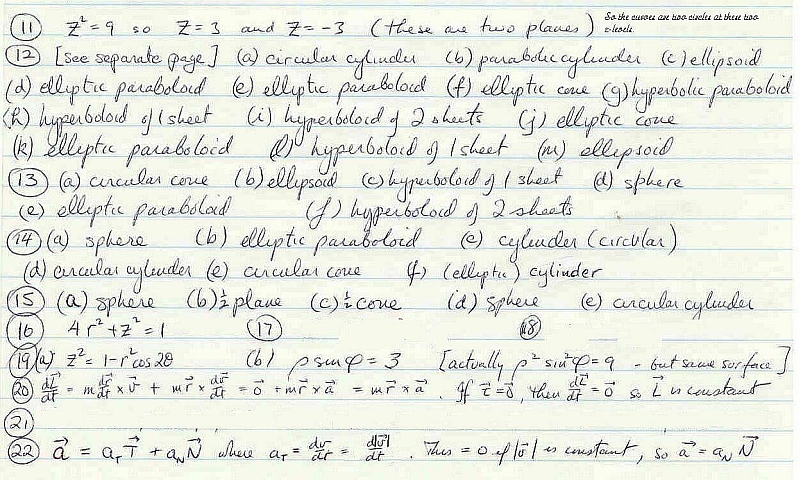 (11) z² = 9 so z = 3 and z = -3 (these are two planes) So the curves are two circles at these two z-levels.
(12) [see separate page] (a) circular cylinder (b) parabolic cylinder (c) ellipsoid
(d) elliptic paraboloid (e) elliptic paraboloid (f) elliptic cone (g) hyperbolic paraboloid
(h) hyperboloid of 1 sheet (i) hyperboloid of 2 sheets (j) elliptic cone
(k) elliptic paraboloid (l) hyperboloid of 1 sheet (m) ellipsoid
(13) (a) circular cone (b) ellipsoid (c) hyperboloid of 1 sheet (d) sphere
(e) elliptic paraboloid (f) hyperboloid of 2 sheets
(14) (a) sphere (b) elliptic paraboloid (c) cylinder (circular)
(d) circular cylinder (e) circular cone (f) (elliptic) cylinder
(15) (a) sphere (b) ½ plane (c) ½ cone (d) sphere (e) circular cylinder
(16) 4r² + z² = 1 (17) (18)
(19) (a) z² = 1 - r² cos 2θ (b) ρ sin φ = 3 [actually ρ² sin² φ = 9 - but same surface]
(20) dL⃗/dt = m dr⃗/dt × v⃗ + m r⃗ × dv⃗/dt = 0⃗ + m r⃗ × a⃗ = m r⃗ × a⃗. If τ⃗ = 0⃗, then dL⃗/dt = 0⃗ so L⃗ is constant
(21)
(22) a⃗ = a_T T⃗ + a_N N⃗ where a_T = dv/dt = d|v⃗|/dt. This = 0 if |v⃗| is constant, so a⃗ = a_N N⃗